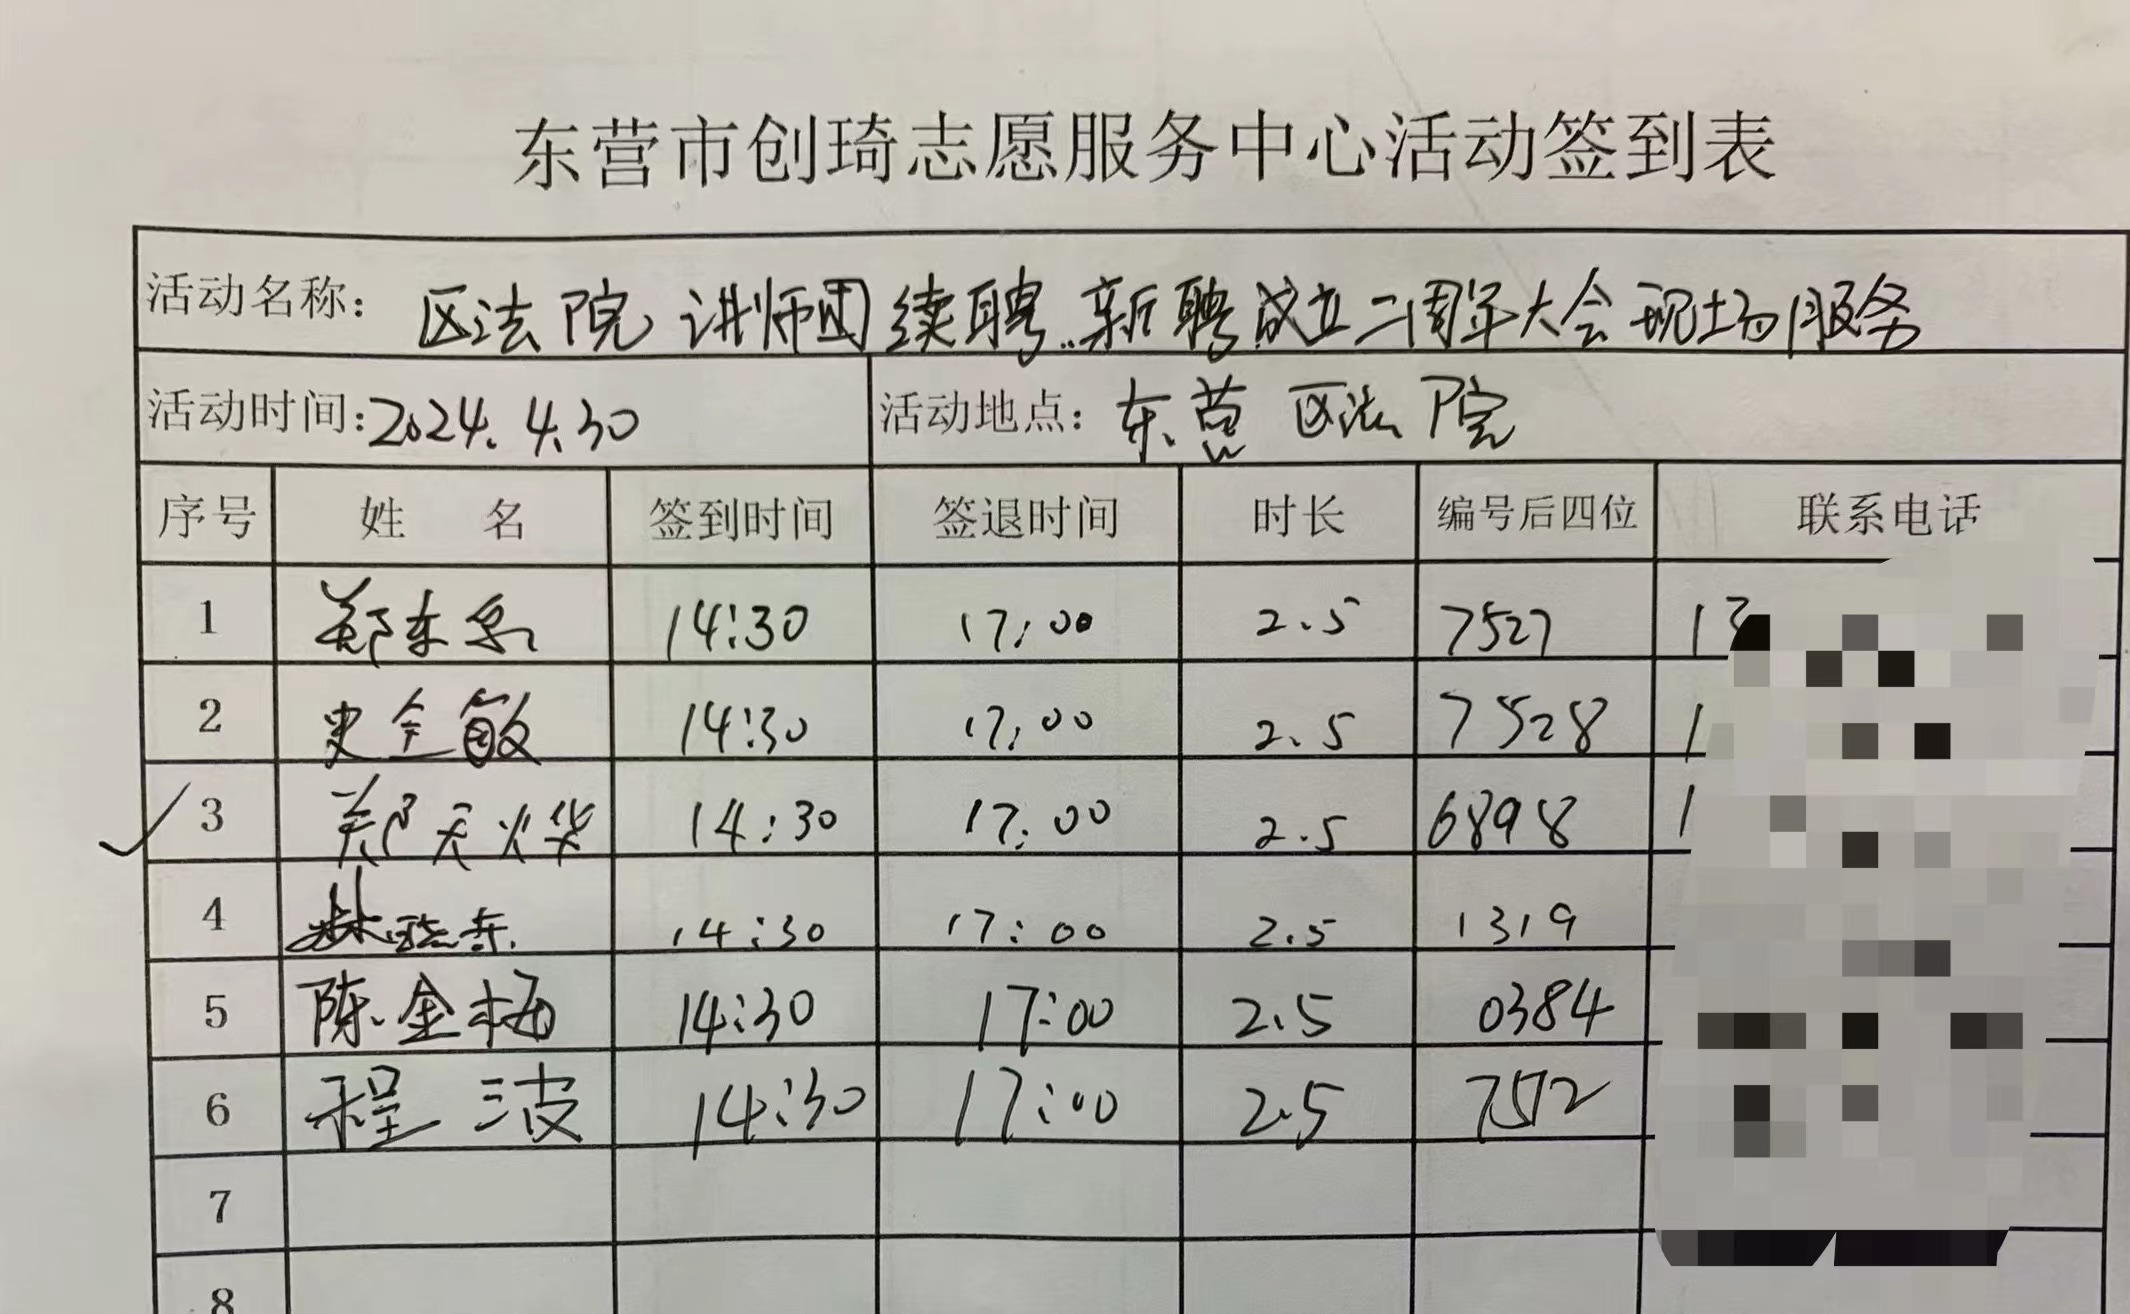 东营市创琦志愿服务中心活动签到表
活动名称: 区法院讲师团续聘..新聘成立二周年大会现场服务
活动时间:2024.4.30 活动地点: 东营区法院
序号 姓名 签到时间 签退时间 时长 编号后四位 联系电话
1 郑东泉 14:30 17:00 2.5 7527 13
2 史全敏 14:30 17:00 2.5 7528 1
✓ 3 郑天烨 14:30 17:00 2.5 6898 1
4 14:30 17:00 2.5 1319
5 陈金梅 14:30 17:00 2.5 0384
6 程波 14:30 17:00 2.5 7572
7
8